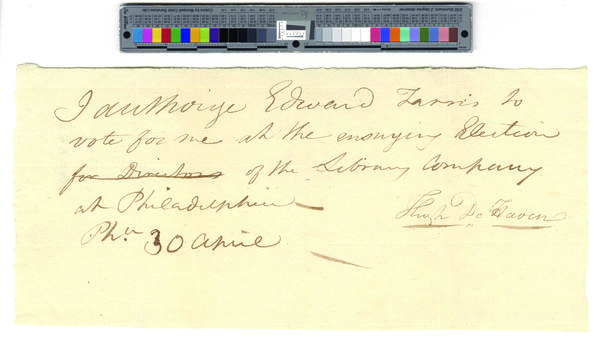 I authorize Edward Farris to
vote for me at the ensuying Election
for Directors of the Library Company
at Philadelphia
Pha 30 April
Hugh